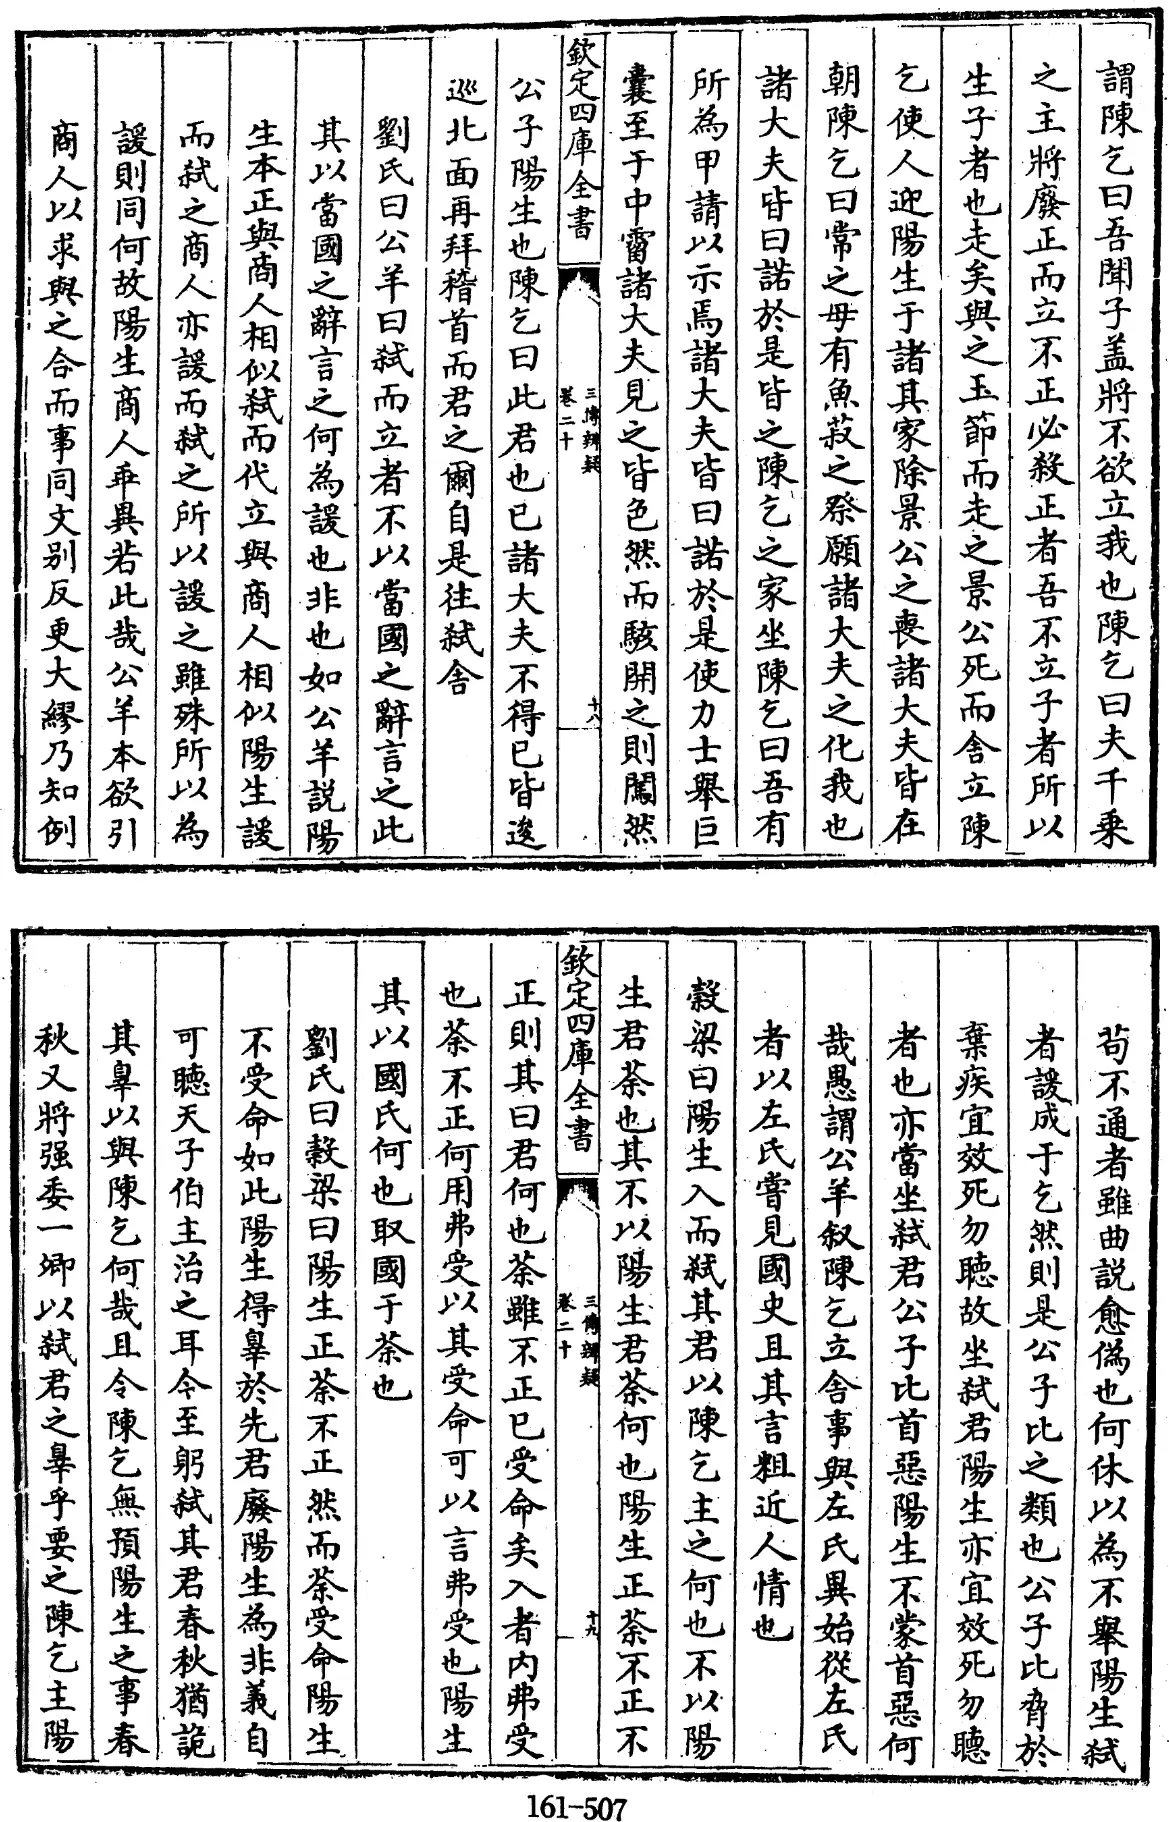 謂陳乞曰吾聞子盖將不欲立我也陳乞曰夫千乗
之主將廢正而立不正必殺正者吾不立子者所以
生子者也走矣與之玉節而走之景公死而舍立陳
乞使人迎陽生于諸其家除景公之喪諸大夫皆在
朝陳乞曰常之母有魚菽之祭願諸大夫之化我也
諸大夫皆曰諾於是皆之陳乞之家坐陳乞曰吾有
所為甲請以示焉諸大夫皆曰諾於是使力士舉巨
囊至于中霤諸大夫見之皆色然而駭開之則闖然
欽定四庫全書
三傳辨疑
卷二十
十八
公子陽生也陳乞曰此君也已諸大夫不得已皆逡
巡北面再拜稽首而君之爾自是往弑舍
劉氏曰公羊曰弑而立者不以當國之辭言之此
其以當國之辭言之何為諼也非也如公羊説陽
生本正與商人相似弑而代立與商人相似陽生諼
而弑之商人亦諼而弑之所以諼之雖殊所以為
諼則同何故陽生商人乖異若此哉公羊本欲引
商人以求與之合而事同文别反更大繆乃知例
苟不通者雖曲説愈偽也何休以為不舉陽生弑
者諼成于乞然則是公子比之類也公子比脅於
棄疾宜效死勿聽故坐弑君陽生亦宜效死勿聽
者也亦當坐弑君公子比首惡陽生不蒙首惡何
哉愚謂公羊叙陳乞立舍事與左氏異始從左氏
者以左氏嘗見國史且其言粗近人情也
糓梁曰陽生入而弑其君以陳乞主之何也不以陽
生君荼也其不以陽生君荼何也陽生正荼不正不
欽定四庫全書
三傳辨疑
卷二十
十九
正則其曰君何也荼雖不正已受命矣入者内弗受
也荼不正何用弗受以其受命可以言弗受也陽生
其以國氏何也取國于荼也
劉氏曰糓梁曰陽生正荼不正然而荼受命陽生
不受命如此陽生得辠於先君廢陽生為非義自
可聽天子伯主治之耳今至躬弑其君春秋猶詭
其辠以與陳乞何哉且令陳乞無預陽生之事春
秋又將强委一卿以弑君之辠乎要之陳乞主陽
161-507